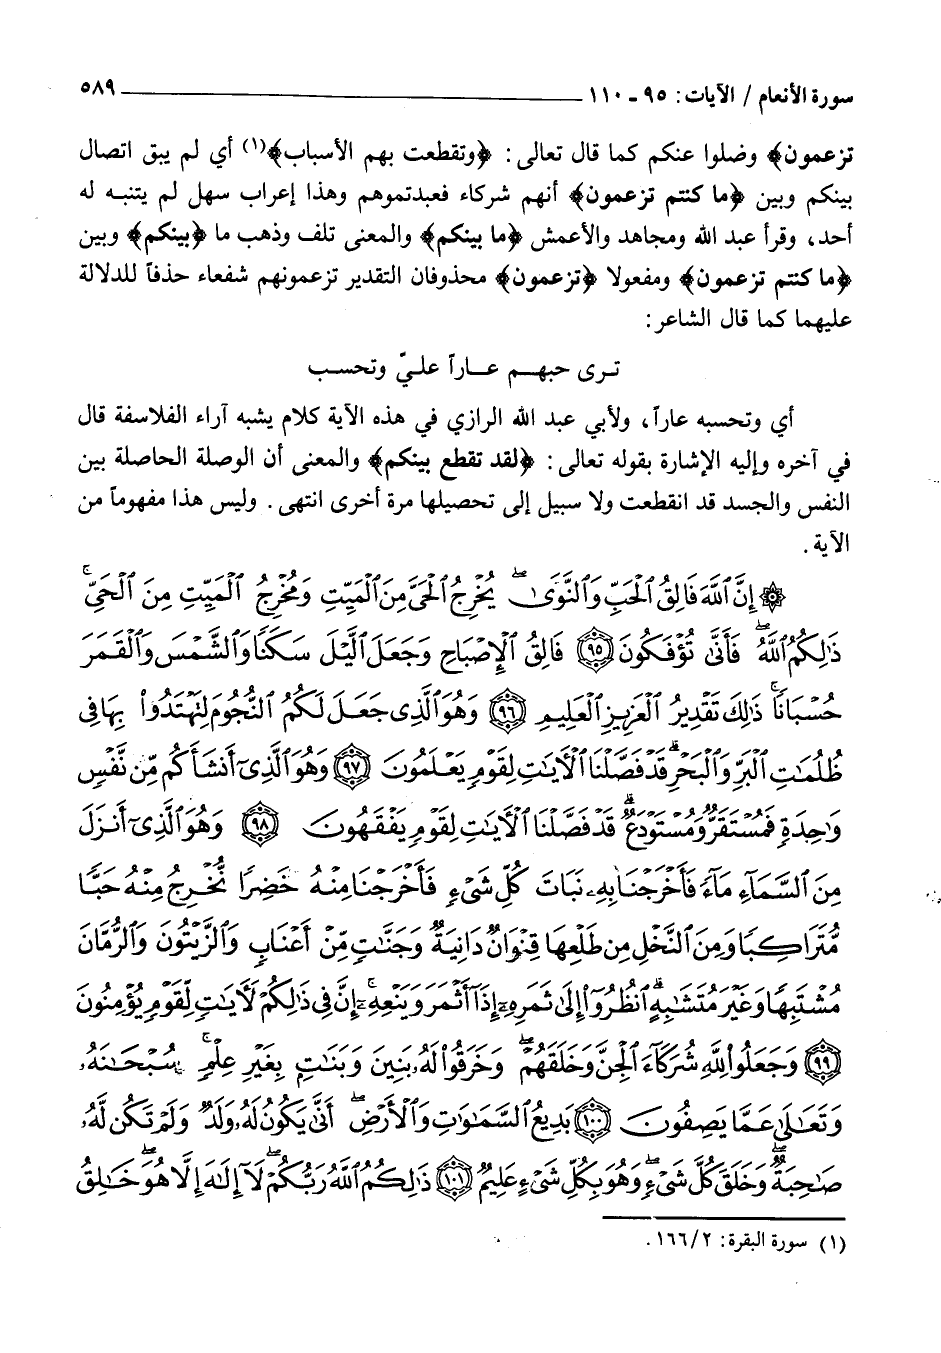 سورة الأنعام / الآيات: ٩٥ - ١١٠ ٥٨٩
تزعمون﴾ وضلوا عنكم كما قال تعالى: ﴿وتقطعت بهم الأسباب﴾(١) أي لم يبق اتصال
بينكم وبين ﴿ما كنتم تزعمون﴾ أنهم شركاء فعبدتموهم وهذا إعراب سهل لم يتنبه له
أحد، وقرأ عبد الله ومجاهد والأعمش ﴿ما بينكم﴾ والمعنى تلف وذهب ما ﴿بينكم﴾ وبين
﴿ما كنتم تزعمون﴾ ومفعولا ﴿تزعمون﴾ محذوفان التقدير تزعمونهم شفعاء حذفاً للدلالة
عليهما كما قال الشاعر:
تـرى حبهـم عـاراً علـيّ وتحسـب
أي وتحسبه عاراً، ولأبي عبد الله الرازي في هذه الآية كلام يشبه آراء الفلاسفة قال
في آخره وإليه الإشارة بقوله تعالى: ﴿لقد تقطع بينكم﴾ والمعنى أن الوصلة الحاصلة بين
النفس والجسد قد انقطعت ولا سبيل إلى تحصيلها مرة أخرى انتهى. وليس هذا مفهوماً من
الآية.
۞ إِنَّ ٱللَّهَ فَالِقُ ٱلْحَبِّ وَٱلنَّوَىٰ ۖ يُخْرِجُ ٱلْحَىَّ مِنَ ٱلْمَيِّتِ وَمُخْرِجُ ٱلْمَيِّتِ مِنَ ٱلْحَىِّ ۚ
ذَٰلِكُمُ ٱللَّهُ ۖ فَأَنَّىٰ تُؤْفَكُونَ ٩٥ فَالِقُ ٱلْإِصْبَاحِ وَجَعَلَ ٱلَّيْلَ سَكَنًا وَٱلشَّمْسَ وَٱلْقَمَرَ
حُسْبَانًا ۚ ذَٰلِكَ تَقْدِيرُ ٱلْعَزِيزِ ٱلْعَلِيمِ ٩٦ وَهُوَ ٱلَّذِى جَعَلَ لَكُمُ ٱلنُّجُومَ لِتَهْتَدُوا۟ بِهَا فِى
ظُلُمَٰتِ ٱلْبَرِّ وَٱلْبَحْرِ ۗ قَدْ فَصَّلْنَا ٱلْءَايَٰتِ لِقَوْمٍ يَعْلَمُونَ ٩٧ وَهُوَ ٱلَّذِىٓ أَنشَأَكُم مِّن نَّفْسٍ
وَٰحِدَةٍ فَمُسْتَقَرٌّ وَمُسْتَوْدَعٌ ۗ قَدْ فَصَّلْنَا ٱلْءَايَٰتِ لِقَوْمٍ يَفْقَهُونَ ٩٨ وَهُوَ ٱلَّذِىٓ أَنزَلَ
مِنَ ٱلسَّمَآءِ مَآءً فَأَخْرَجْنَا بِهِۦ نَبَاتَ كُلِّ شَىْءٍ فَأَخْرَجْنَا مِنْهُ خَضِرًا نُّخْرِجُ مِنْهُ حَبًّا
مُّتَرَاكِبًا وَمِنَ ٱلنَّخْلِ مِن طَلْعِهَا قِنْوَانٌ دَانِيَةٌ وَجَنَّٰتٍ مِّنْ أَعْنَابٍ وَٱلزَّيْتُونَ وَٱلرُّمَّانَ
مُشْتَبِهًا وَغَيْرَ مُتَشَٰبِهٍ ۗ ٱنظُرُوٓا۟ إِلَىٰ ثَمَرِهِۦٓ إِذَآ أَثْمَرَ وَيَنْعِهِۦٓ ۚ إِنَّ فِى ذَٰلِكُمْ لَءَايَٰتٍ لِّقَوْمٍ يُؤْمِنُونَ
٩٩ وَجَعَلُوا۟ لِلَّهِ شُرَكَآءَ ٱلْجِنَّ وَخَلَقَهُمْ ۖ وَخَرَقُوا۟ لَهُۥ بَنِينَ وَبَنَٰتٍ بِغَيْرِ عِلْمٍ ۚ سُبْحَٰنَهُۥ
وَتَعَٰلَىٰ عَمَّا يَصِفُونَ ١٠٠ بَدِيعُ ٱلسَّمَٰوَٰتِ وَٱلْأَرْضِ ۖ أَنَّىٰ يَكُونُ لَهُۥ وَلَدٌ وَلَمْ تَكُن لَّهُۥ
صَٰحِبَةٌ ۖ وَخَلَقَ كُلَّ شَىْءٍ ۖ وَهُوَ بِكُلِّ شَىْءٍ عَلِيمٌ ١٠١ ذَٰلِكُمُ ٱللَّهُ رَبُّكُمْ ۖ لَآ إِلَٰهَ إِلَّا هُوَ ۖ خَٰلِقُ
(١) سورة البقرة: ١٦٦/٢.